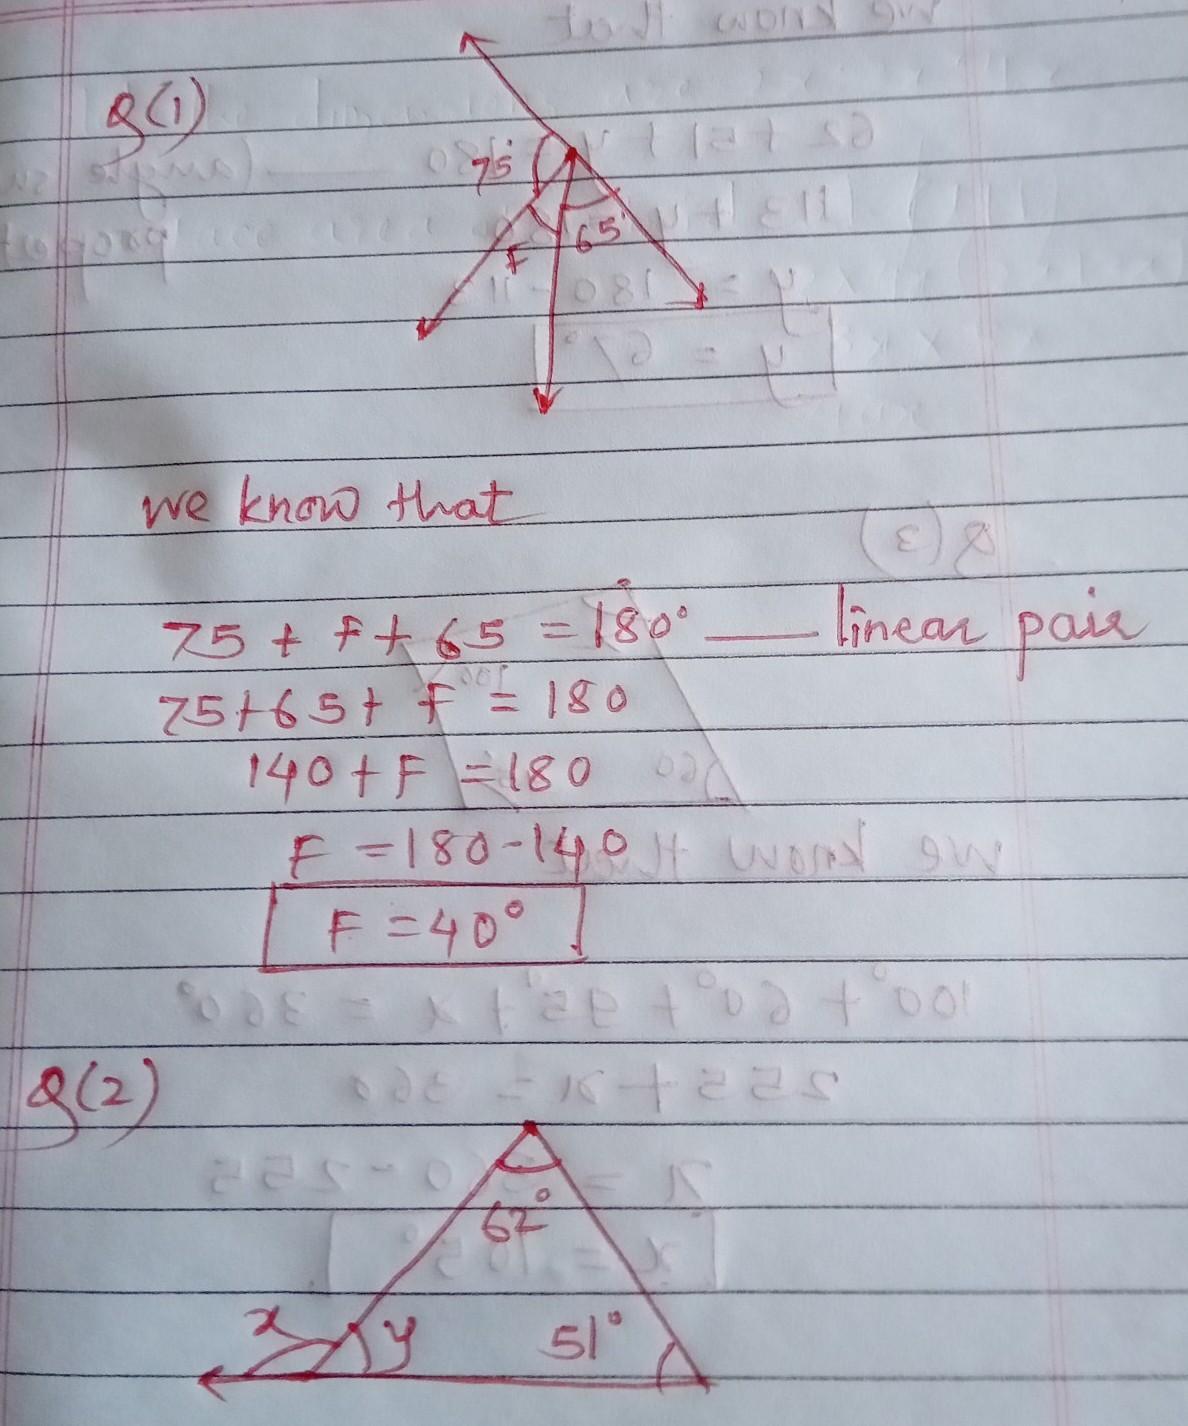 Q(1)
75°
F
65°
we know that
75 + F + 65 = 180° — linear pair
75+65+ F = 180
140 + F = 180
F = 180-140
F = 40°
Q(2)
62°
x
y
51°